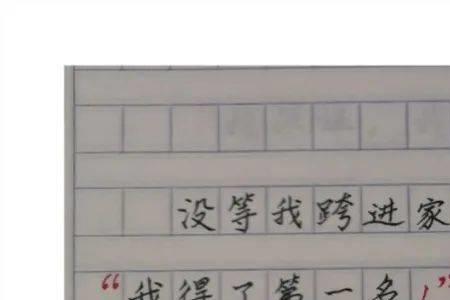 没等我跨进家
“我得了第一名！”